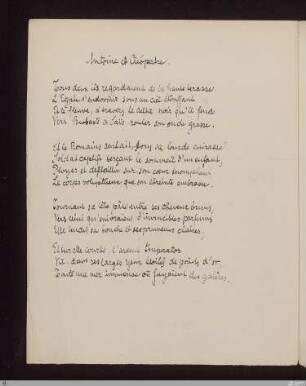 Antoine et Cléopatre.
Tous deux ils regardaient de la haute terrasse
L'Egypte s'endormir sous un ciel étouffant
Et le Fleuve, à travers le delta noir qu'il fend
Vers Bubaste ou Saïs rouler son onde grasse.
Et le Romain sentait, sous sa lourde cuirasse
Soldat captif berçant le sommeil d'un enfant,
Ployer et défaillir sur son cœur triomphant
Le corps voluptueux que son étreinte embrasse.
Tournant sa tête pâle entre ses cheveux bruns,
Vers celui qu'enivraient d'invincibles parfums
Elle tendit sa bouche et ses prunelles claires;
Et sur elle courbé l'ardent Imperator
Vit dans ces larges yeux étoilés de points d'or
Toute une mer immense où fuyaient des galères.